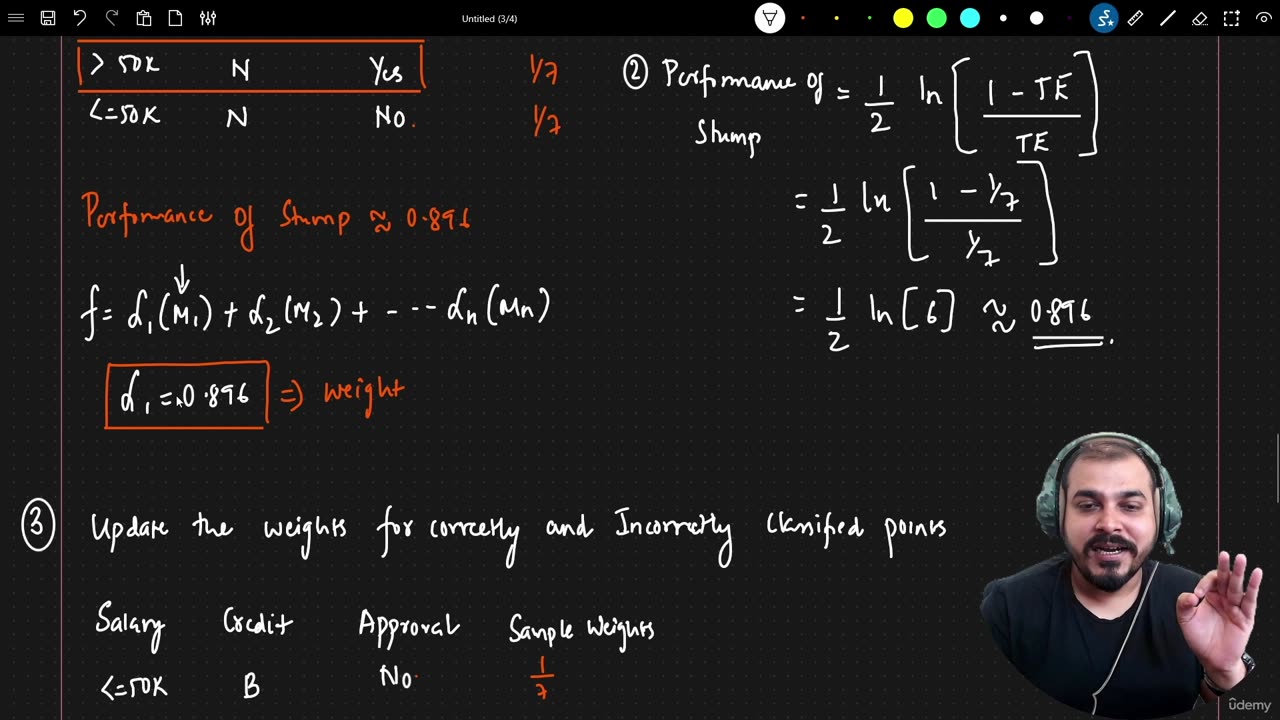 Untitled (3/4)
> 50K N Yes 1/7
<=50K N No. 1/7
② Performance of Stump = 1/2 ln [ 1 - TE / TE ]
= 1/2 ln [ 1 - 1/7 / 1/7 ]
= 1/2 ln [6] ≈ 0.896.
Performance of Stump ≈ 0.896
f = α₁(M₁) + α₂(M₂) + ---- αn(Mn)
α₁ = 0.896 ⇒ Weight
③ Update the weights for correctly and Incorrectly Classified points
Salary Credit Approval Sample Weights
<=50K B No. 1/7
ûdemy